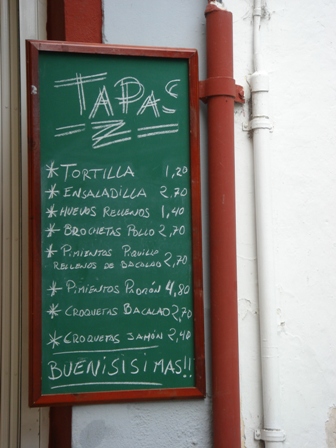 TAPAS
* TORTILLA 1,20
* ENSALADILLA 2,70
* HUEVOS RELLENOS 1,40
* BROCHETAS POLLO 2,70
* PIMIENTOS PIQUILLO
RELLENOS DE BACALAO 2,70
* PIMIENTOS PADRÓN 4,80
* CROQUETAS BACALAO 2,70
* CROQUETAS JAMÓN 2,40
BUENISISIMAS!!